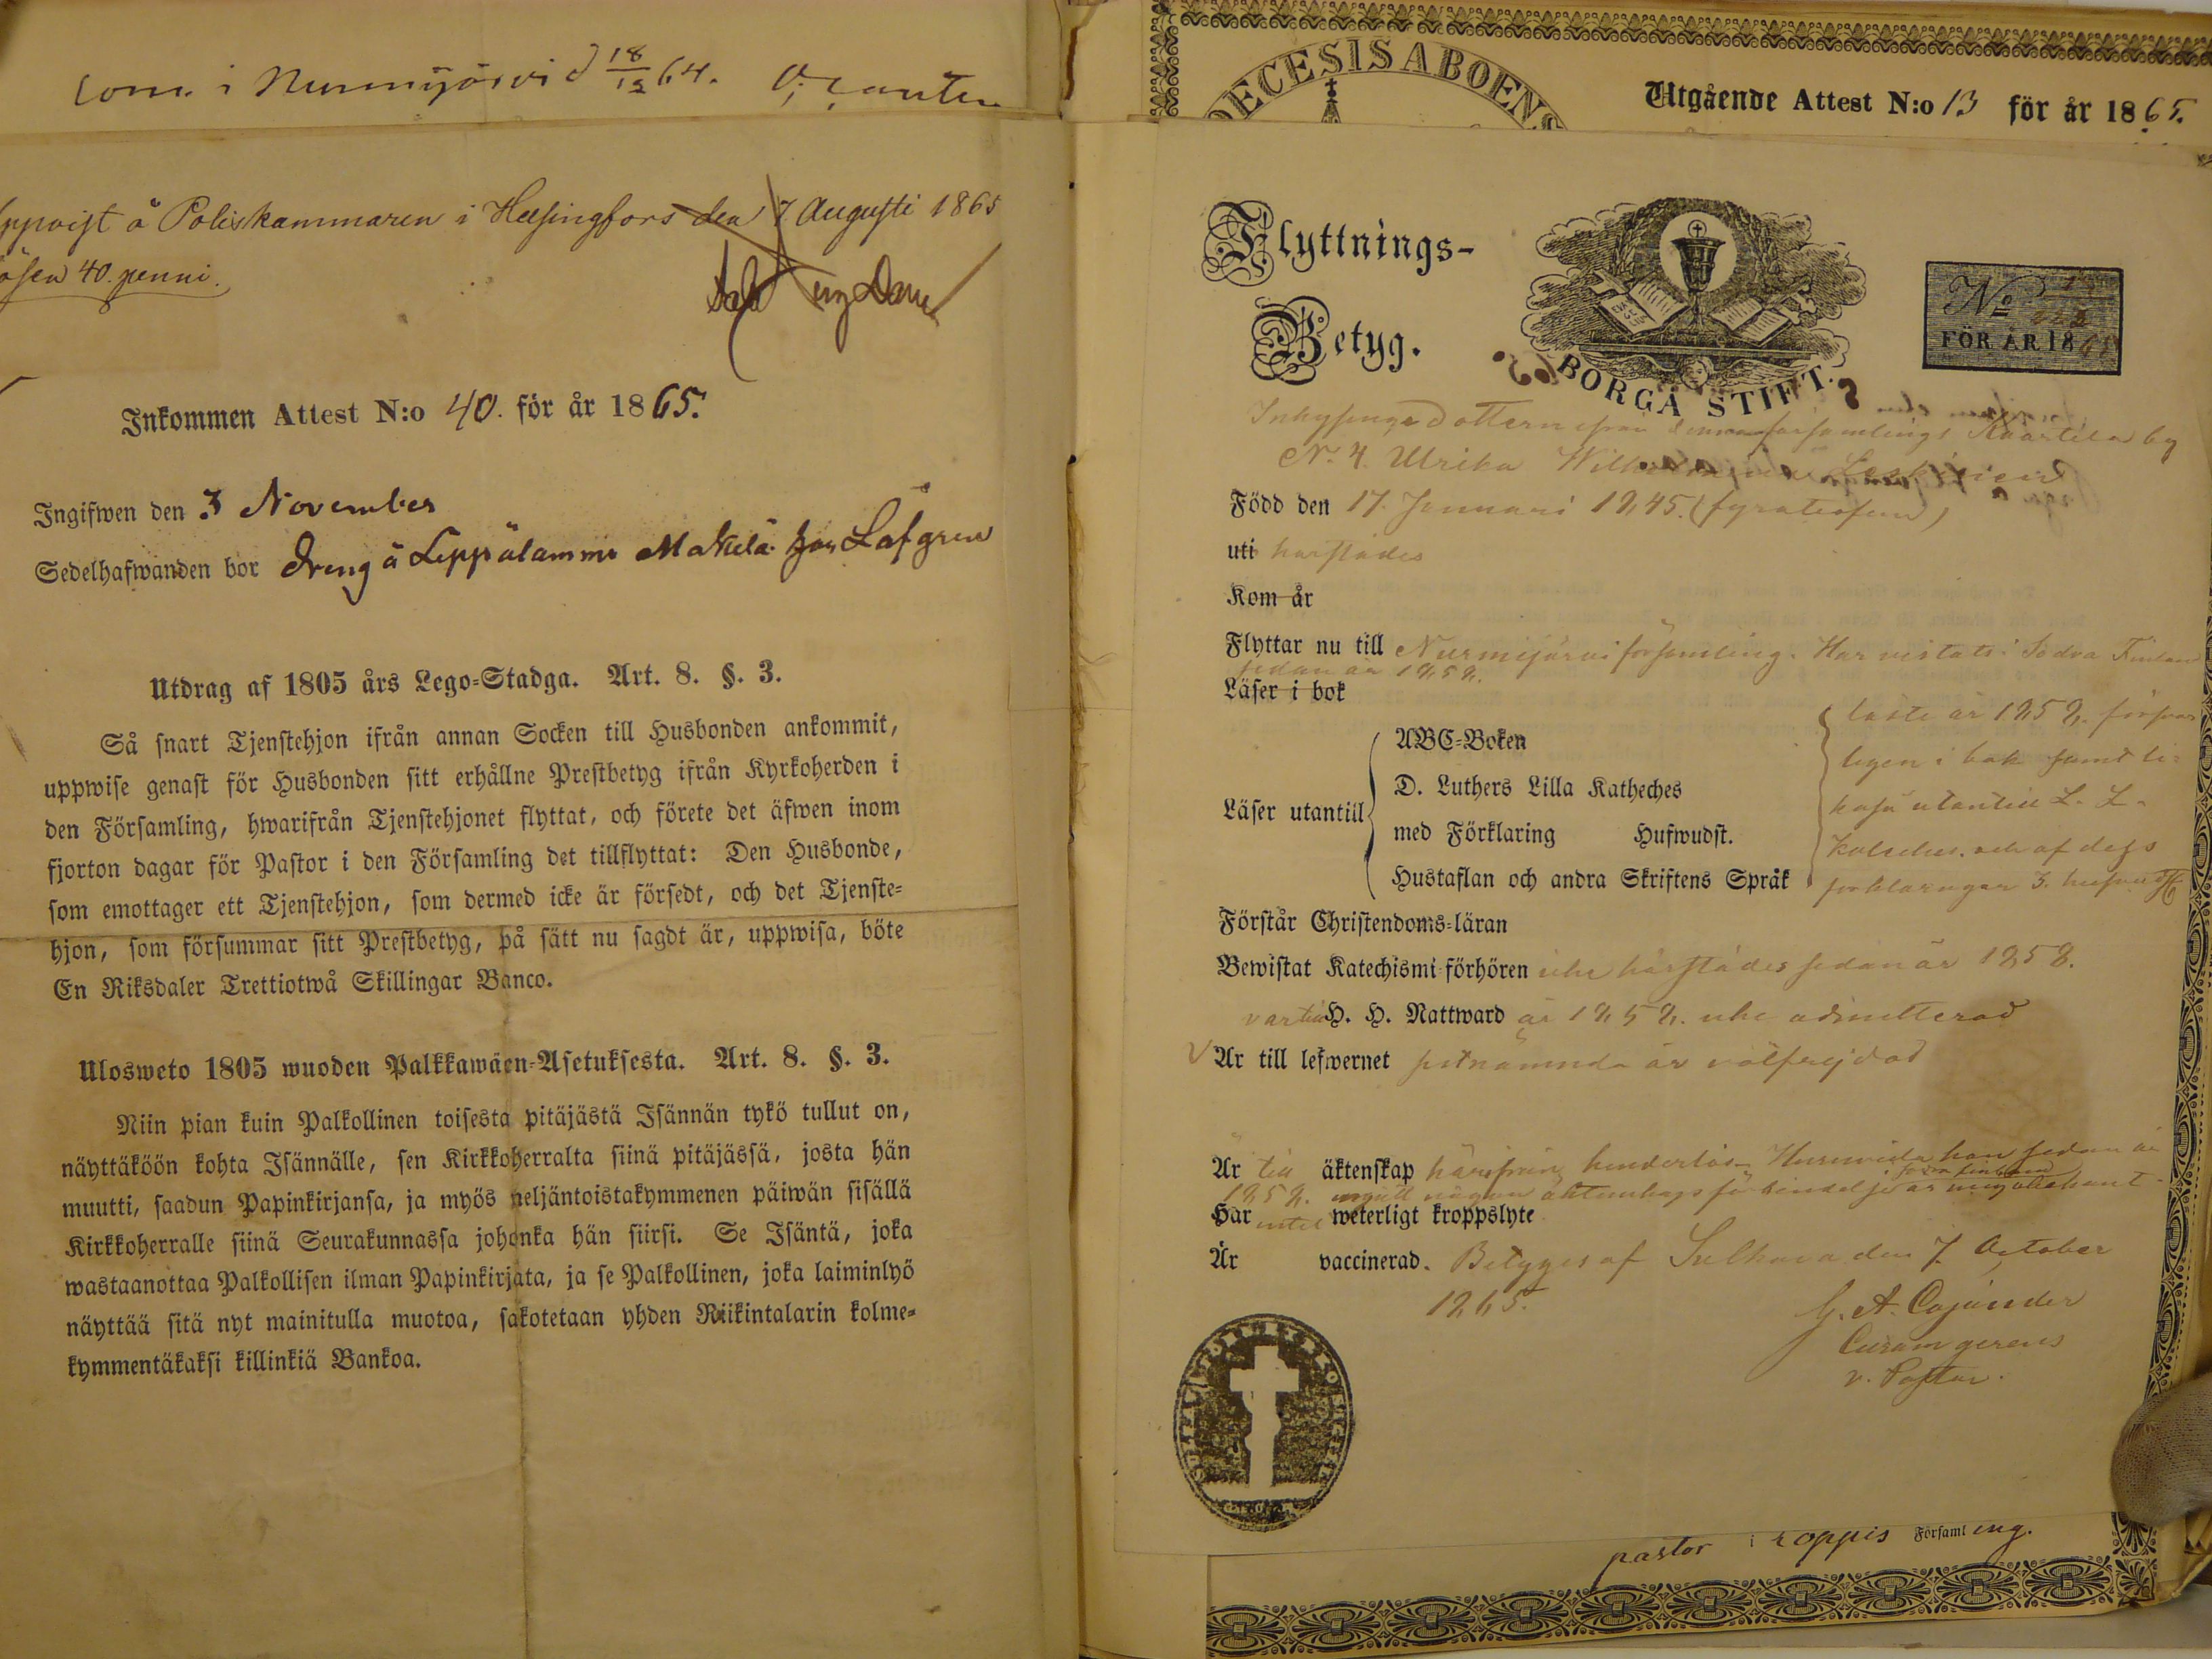 Com. i Nurmijärvi d 18/12 64.
Uppvist å Poliskammaren i Helsingfors den 7 Augusti 1865
Lösen 40. penni.
Inkommen Attest N:o 40. för år 1865.
Ingifwen den 3 November
Sedelhafwanden bor Dreng å Leppälammi Mäkelä hos Löfgren
Utdrag af 1805 års Lego-Stadga. Art. 8. §. 3.
Så snart Tjenstehjon ifrån annan Socken till Husbonden ankommit,
uppwise genast för Husbonden sitt erhållne Prestbetyg ifrån Kyrkoherden i
den Församling, hwarifrån Tjenstehjonet flyttat, och förete det äfwen inom
fjorton dagar för Pastor i den Församling det tillflyttat: Den Husbonde,
som emottager ett Tjenstehjon, som dermed icke är försedt, och det Tjenste-
hjon, som försummar sitt Prestbetyg, på sätt nu sagdt är, uppwisa, böte
En Riksdaler Trettiotwå Skillingar Banco.
Ulosweto 1805 wuoden Palkkawäen-Asetuksesta. Art. 8. §. 3.
Niin pian kuin Palkollinen toisesta pitäjästä Isännän tykö tullut on,
näyttäköön kohta Isännälle, sen Kirkkoherralta siinä pitäjässä, josta hän
muutti, saadun Papinkirjansa, ja myös neljäntoistakymmenen päiwän sisällä
Kirkkoherralle siinä Seurakunnassa johonka hän siirsi. Se Isäntä, joka
wastaanottaa Palkollisen ilman Papinkirjata, ja se Palkollinen, joka laiminlyö
näyttää sitä nyt mainitulla muotoa, sakotetaan yhden Riikintalarin kolme-
kymmentäkaksi killinkiä Bankoa.
DECESIS ABOENS
Utgående Attest N:o 13 för år 1865.
Flyttnings-
Betyg.
BORGÅ STIFT.
No
FÖR ÅR 1865
Inhysinge Dottern från denna församlings by
N:o 4. Ulrika Wilhelmina
Född den 17. Januari 1845. (fyratiofem)
uti härstädes
Kom år
Flyttar nu till Nurmijärvi församling. Har vistats i Södra Finland
sedan år 1858.
Läser i bok
Läser utantill
ABC-Boken
D. Luthers Lilla Katheches
med Förklaring Hufwudst.
Hustaflan och andra Skriftens Språk
läste år 1858. försvar
ligen i bok samt li-
kaså utantill L. L.
Kateches. och af dess
förklaringar 3. hufvudst
Förstår Christendoms-läran
Bewistat Katechismi förhören icke härstädes sedan år 1858.
var till H. H. Nattward år 1858. icke admitterad
Är till lefwernet sistnämnda år välfrejdad
Är till äktenskap härifrån hinderlös. Huruvida hon sedan år
1858. ingått någon äktenskaps förbindelse i Södra Finland är mig obekant.
Har intet weterligt kroppslyte
Är vaccinerad. Betygas af Sulkava den 7. October
1865.
G. A. Cajander
Curam gerens
v. Pastor.
pastor i Loppis Församling.